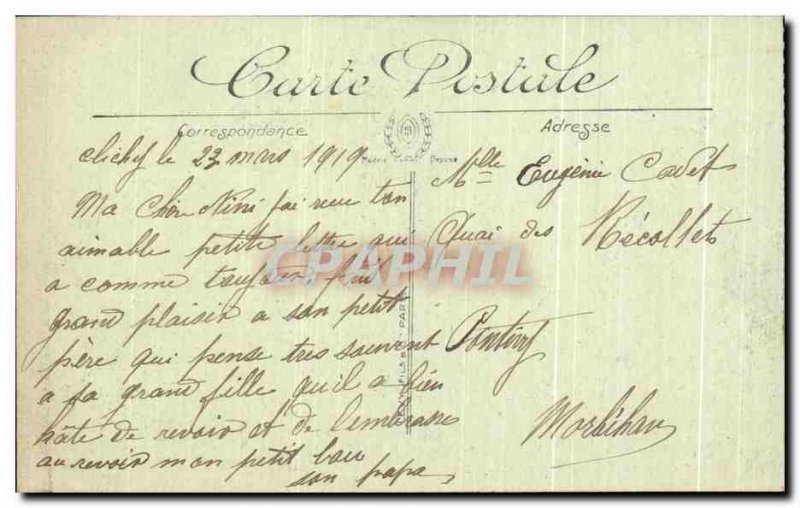 Carte Postale
Correspondance
Adresse
Clichy le 23 mars 1919
Ma Cher Nini j'ai reçu ton
aimable petite lettre qui
a comme toujour fait
grand plaisir a son petit
père qui pense tres souvent
a sa grand fille qu'il a bien
hâte de revoir et de l'embrasser
au revoir mon petit
son papa
Mlle Eugénie Cadet
Quai des Récollets
Pontivy
Morbihan
CPAPHIL